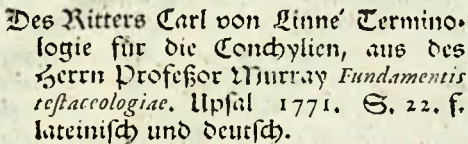 Des Ritters Carl von Linne' Termino-
logie für die Conchylien, aus des
Herrn Profeßor Murray Fundamentis
testaceologiae. Upsal 1771. S. 22. f.
lateinisch und deutsch.